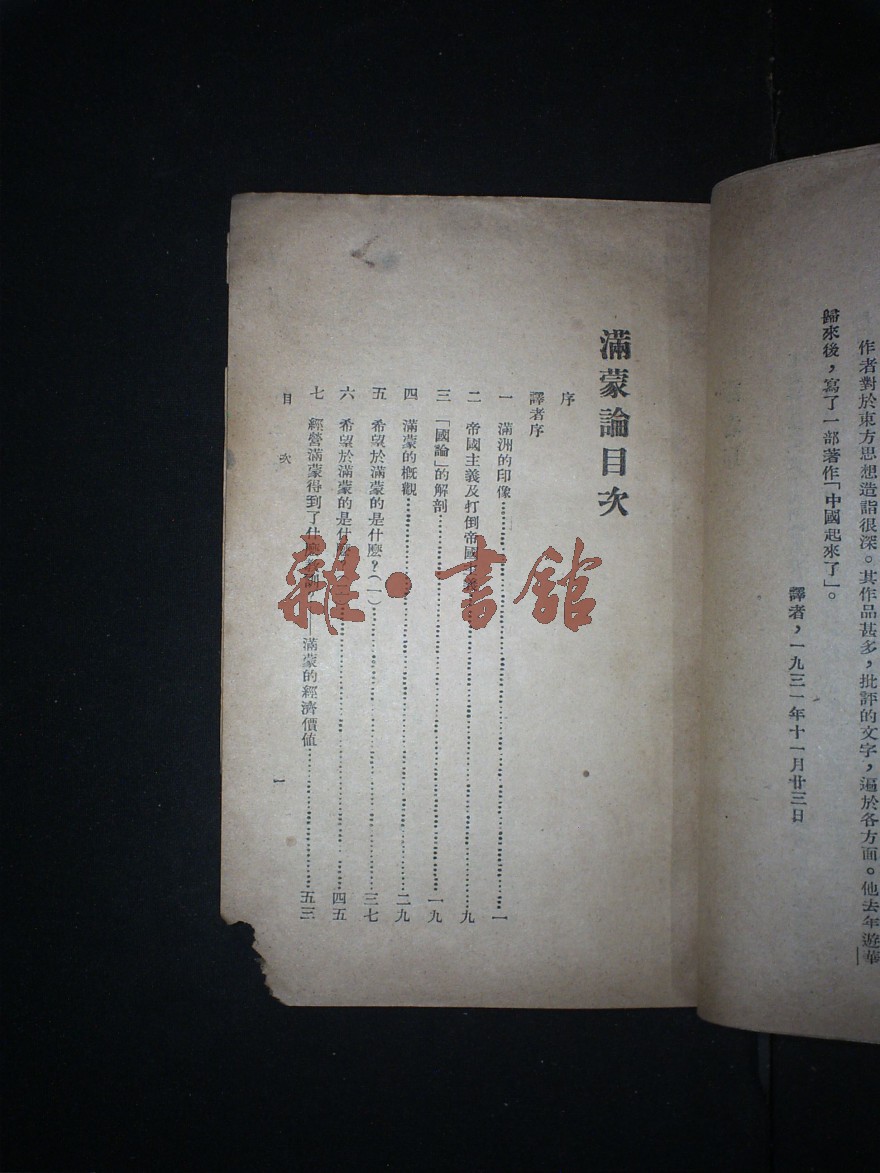 作者對於東方思想造詣很深。其作品甚多，批評的文字，遍於各方面。他去年遊華
歸來後，寫了一部著作「中國起來了」。
譯者，一九三一年十一月廿三日
滿蒙論目次
序
譯者序
一 滿洲的印像……一
二 帝國主義及打倒帝國主義……九
三 「國論」的解剖……一九
四 滿蒙的概觀……二九
五 希望於滿蒙的是什麼？（一）……三七
六 希望於滿蒙的是什麼……四五
七 經營滿蒙得到了什麼——滿蒙的經濟價值……五三
目次
一
雜·書館